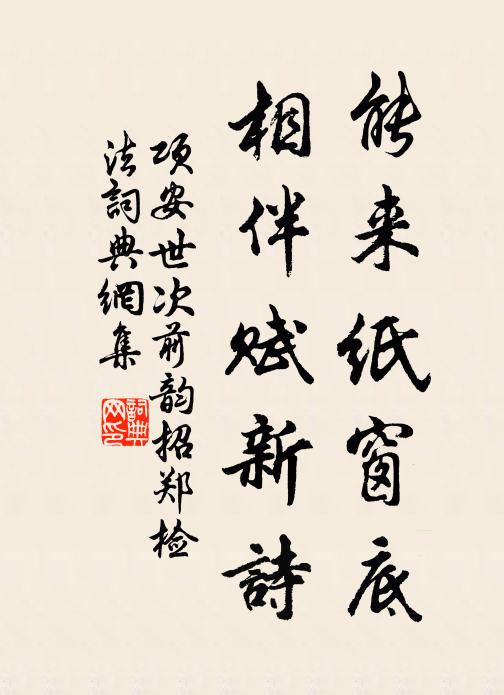 能来纸窗底
相伴赋新詩
项安世次前韵招郑检
法詞典網集
詞典
网印